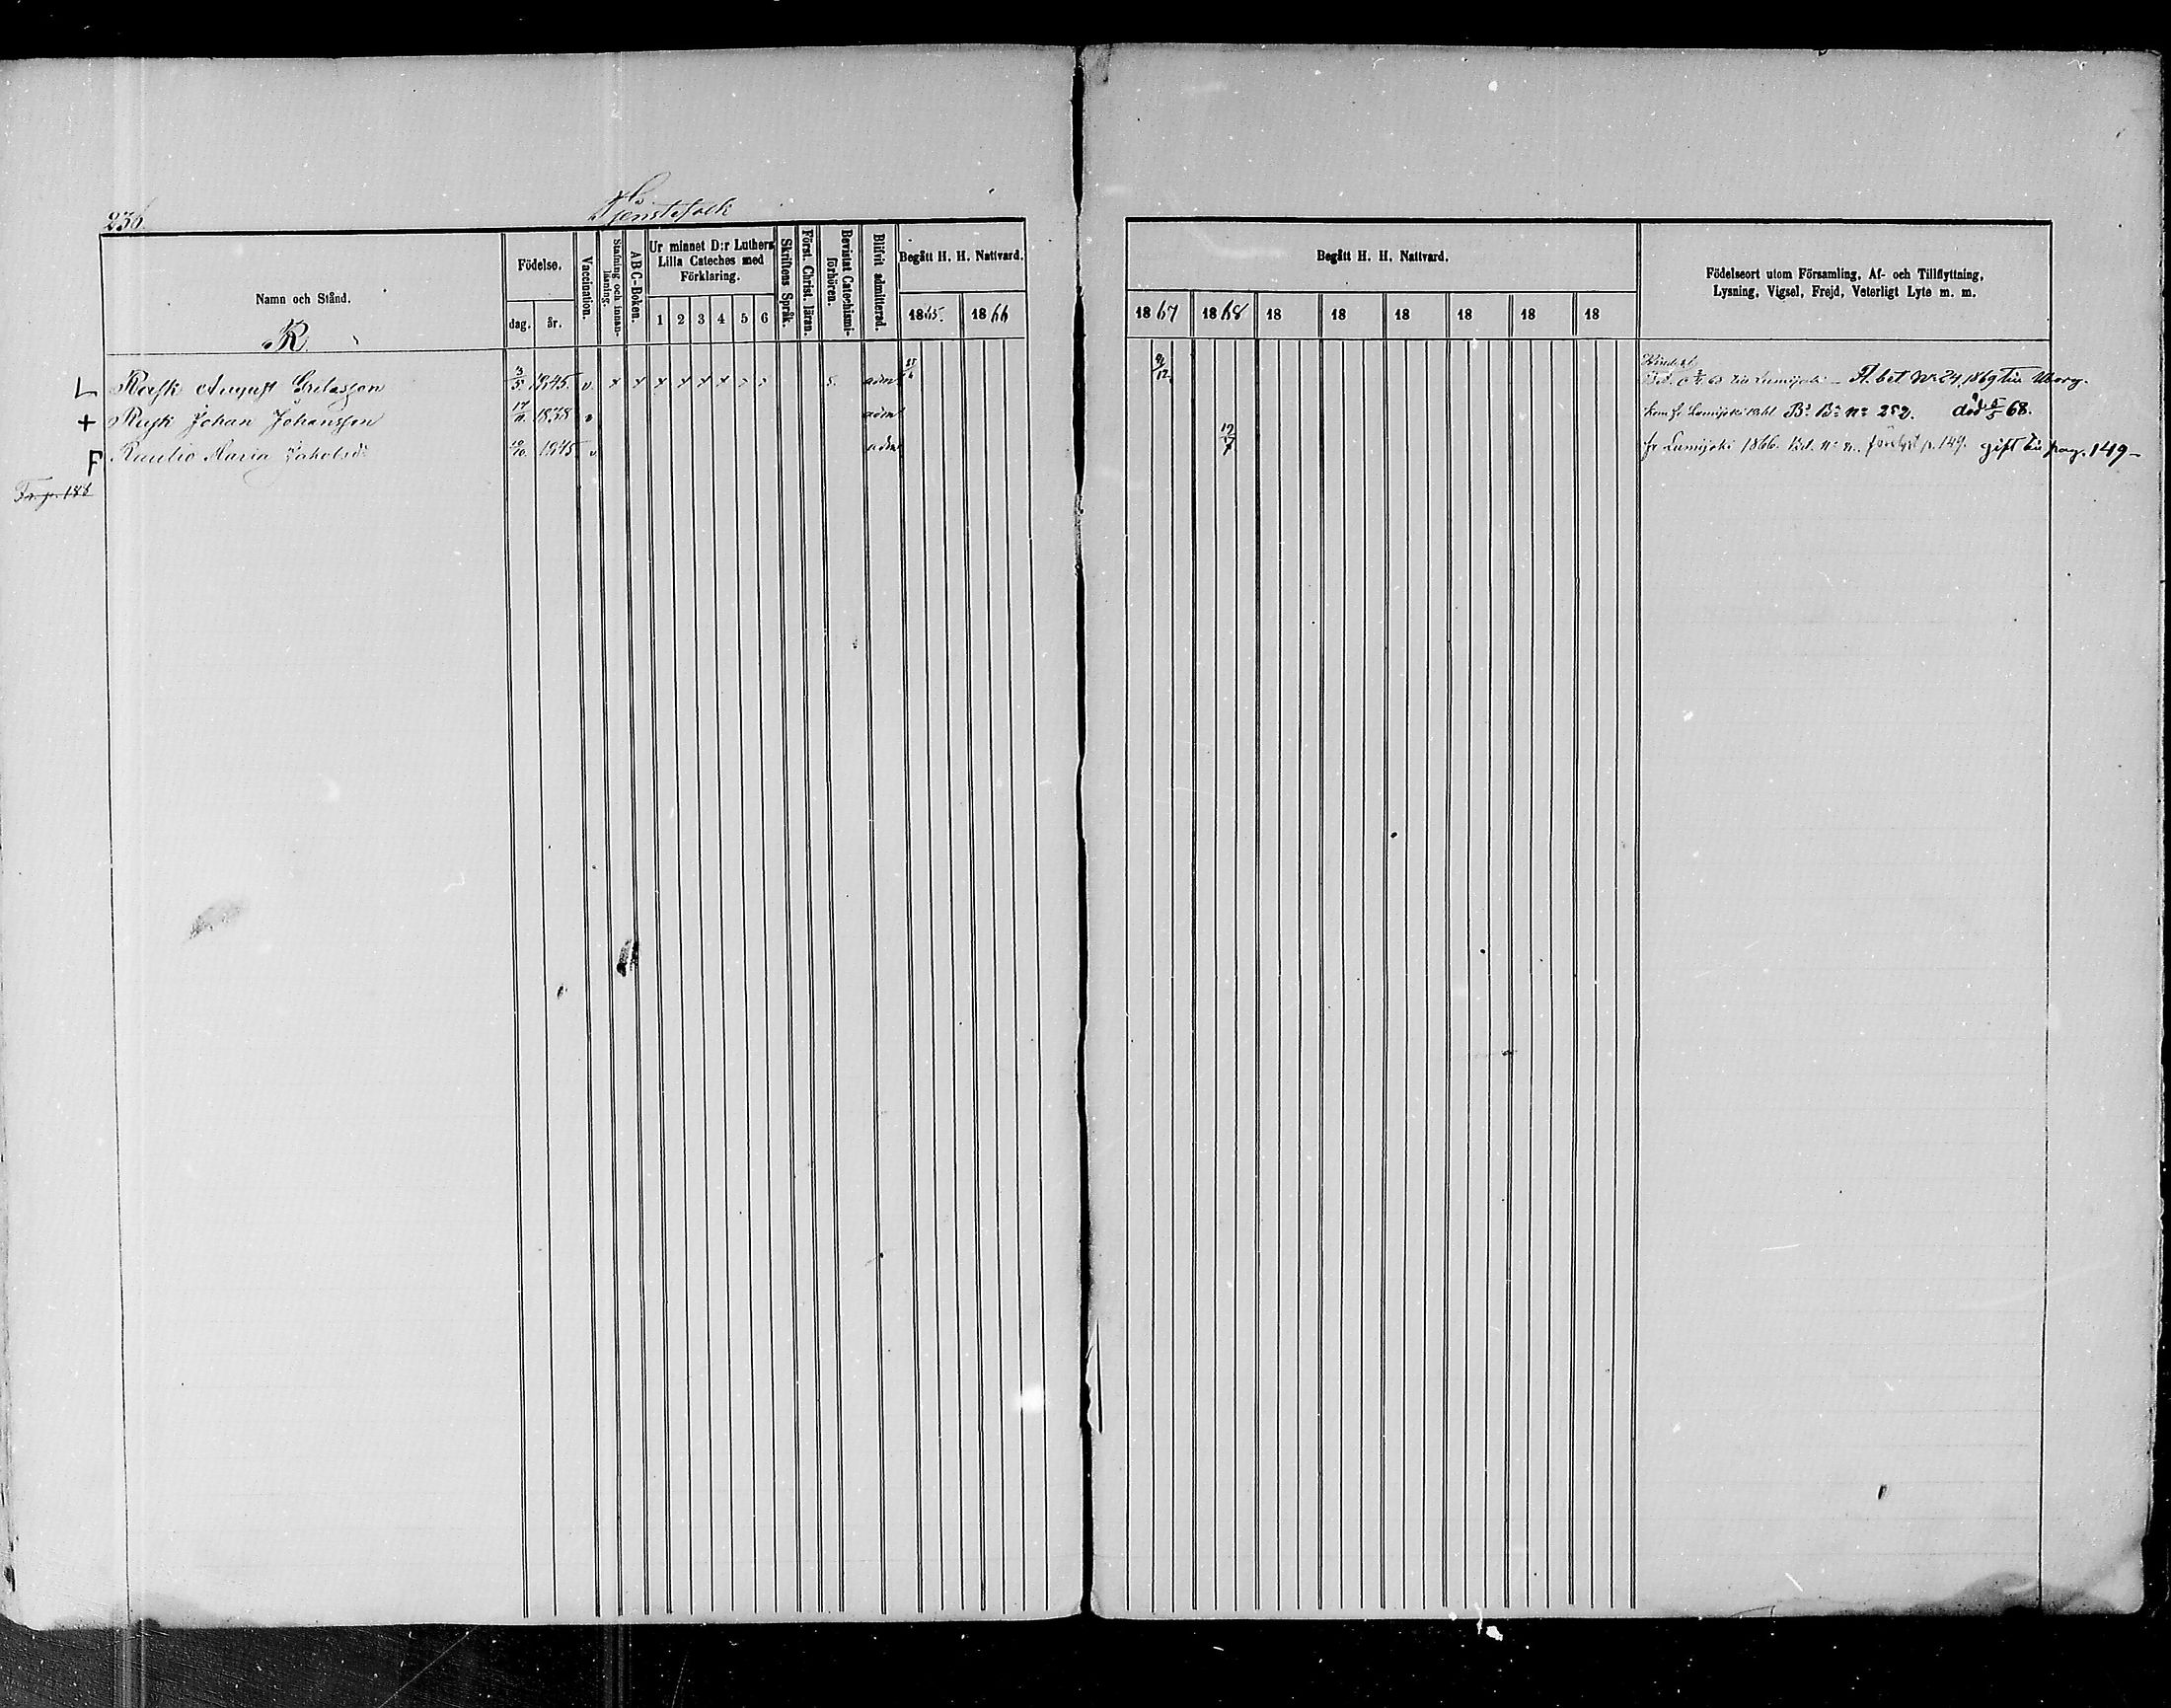 236.
Tjenstefolk
Namn och Stånd.
R.
Födelse.
dag. år.
Vaccination.
Stafning och innanläsning.
ABC-Boken.
Ur minnet D:r Luthers Lilla Cateches med Förklaring.
1 2 3 4 5 6
Skriftens Språk.
Först. Christ. läran.
Bevistat Catechismiförhören.
Blifvit admitterad.
Begått H. H. Nattvard.
1865. 1866
Begått H. H. Nattvard.
1867 1868 18 18 18 18 18 18
Födelseort utom Församling, Af- och Tillflyttning,
Lysning, Vigsel, Frejd, Veterligt Lyte m. m.
L Rask August Gretasson 3/5 1845. v x x x x x x adm 9/12. Lumijoki - Fl. bet No 24, 1869 till Uborg.
+ Rusk Johan Johansson 17/11. 1838 v adm Lumijoki No 252. död 5/5 68.
F Rautio Maria 1845 v adm 12/7 fr Lumijoki 1866. p. 149. gift till pag. 149-
Tr. p. 188